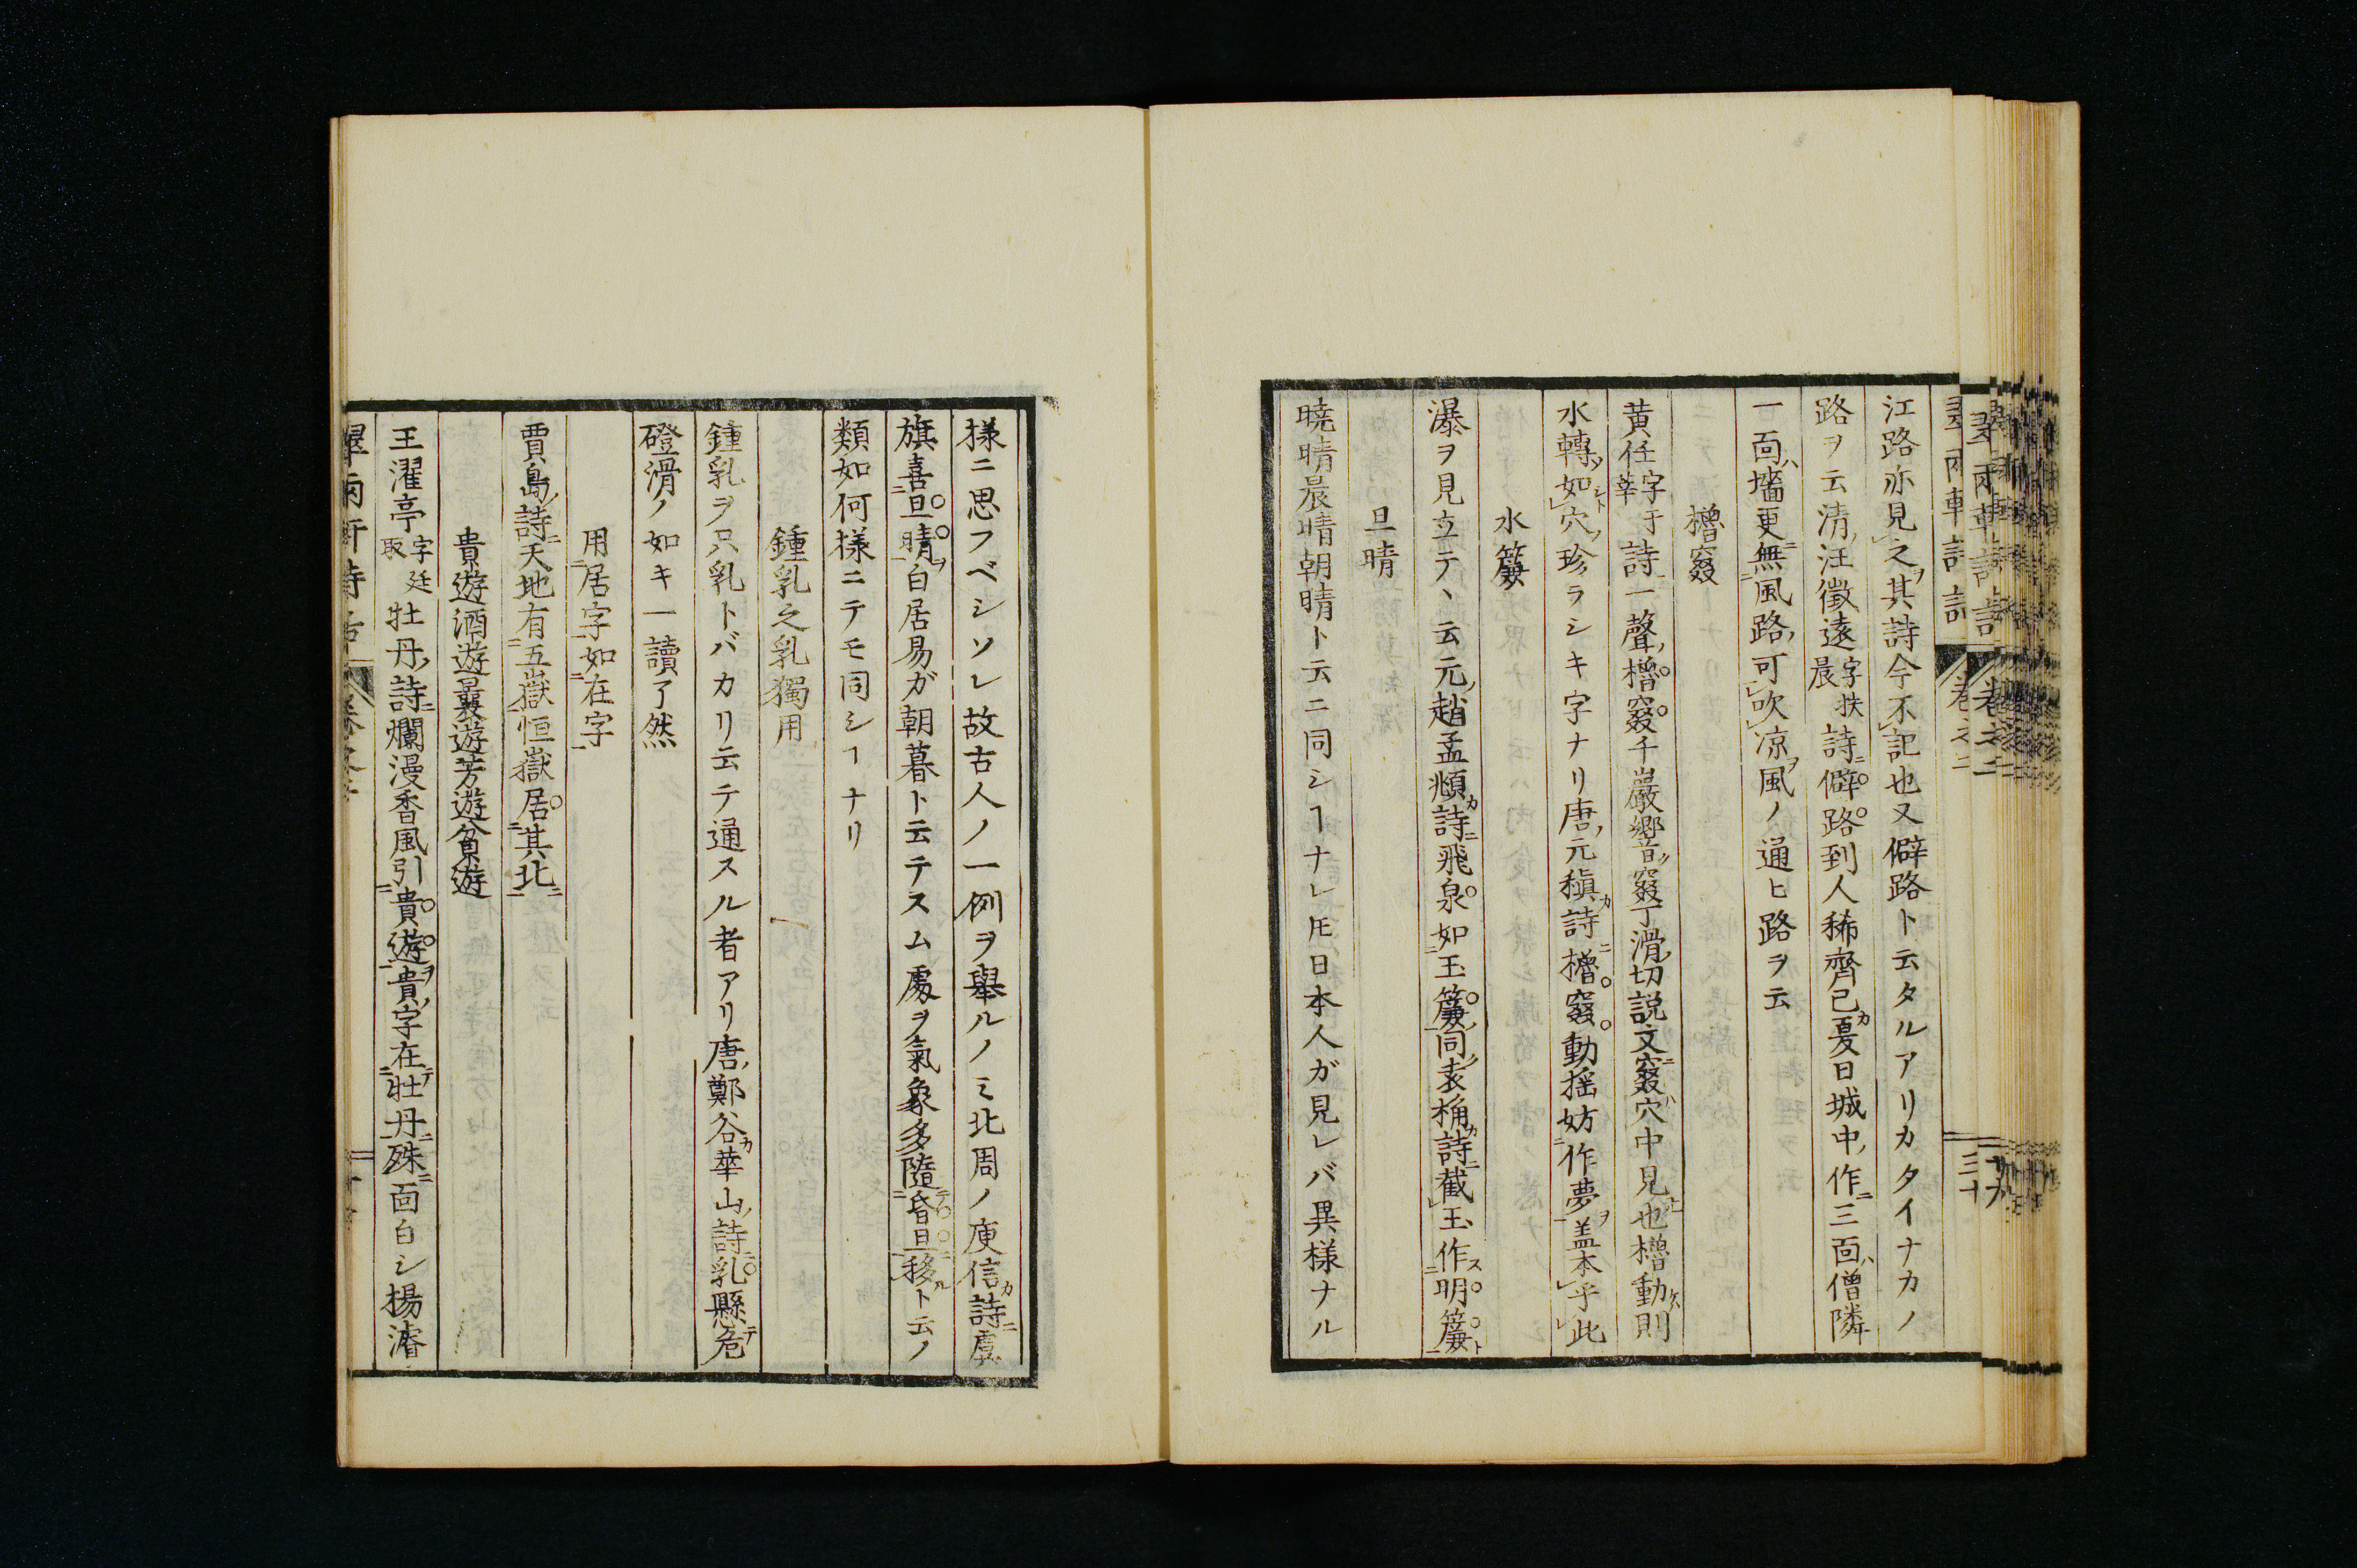 江路亦見之其詩今不記也又僻路ト云タルアリカタイナカノ
路ヲ云清汪徵遠字扶晨詩僻路到人稀齊己夏日城中作三面僧隣
一面墻更無風路可吹凉風ノ通ヒ路ヲ云
櫓窡
黄任字莘于詩一聲櫓窡千巖響音窡丁滑切説文窡穴中見也櫓動則
水轉如穴珍ラシキ字ナリ唐元稹詩櫓窡動揺妨作夢盖本乎此
水簾
瀑ヲ見立テヽ云元趙孟頫詩飛泉如玉簾同袁桷詩截玉作明簾
旦晴
曉晴晨晴朝晴ト云ニ同シヿナレ𪜈日本人ガ見レバ異様ナル
様ニ思フベシソレ故古人ノ一例ヲ舉ルノミ北周ノ庾信詩虞
旗喜旦晴白居易ガ朝暮ト云テスム處ヲ氣象多隨昏旦移ト云ノ
類如何様ニテモ同シヿナリ
鍾乳之乳獨用
鍾乳ヲ只乳トバカリ云テ通スル者アリ唐鄭谷華山詩乳懸危
磴滑ノ如キ一讀了然
用居字如在字
賈島詩天地有五嶽恒嶽居其北
貴遊酒遊最遊芳遊貧遊
王濯亭字廷取牡丹詩爛漫香風引貴遊貴字在牡丹殊面白シ揚濬